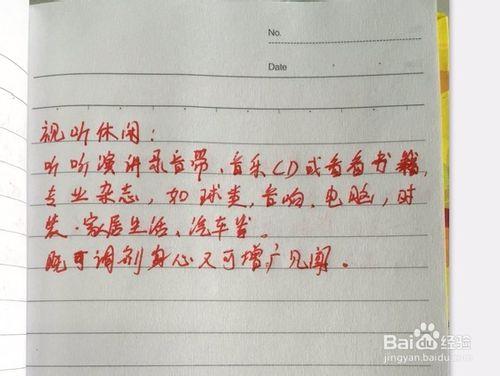 No.
Date
视听休闲:
听听演讲录音带、音乐CD或看看书籍,
专业杂志,如球类,音响、电脑,时
装、家居生活、汽车等。
既可调剂身心又可增广见闻。
Baidu经验
jingyan.baidu.com